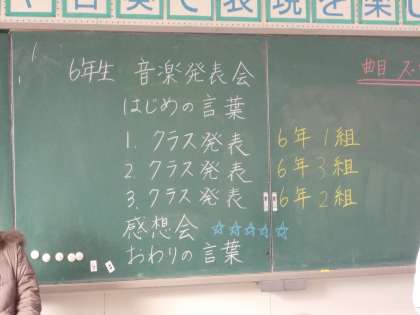 6年生 音楽発表会
はじめの言葉
1. クラス発表 6年1組
2. クラス発表 6年3組
3. クラス発表 6年2組
感想会 ☆☆☆☆☆
おわりの言葉
曲目